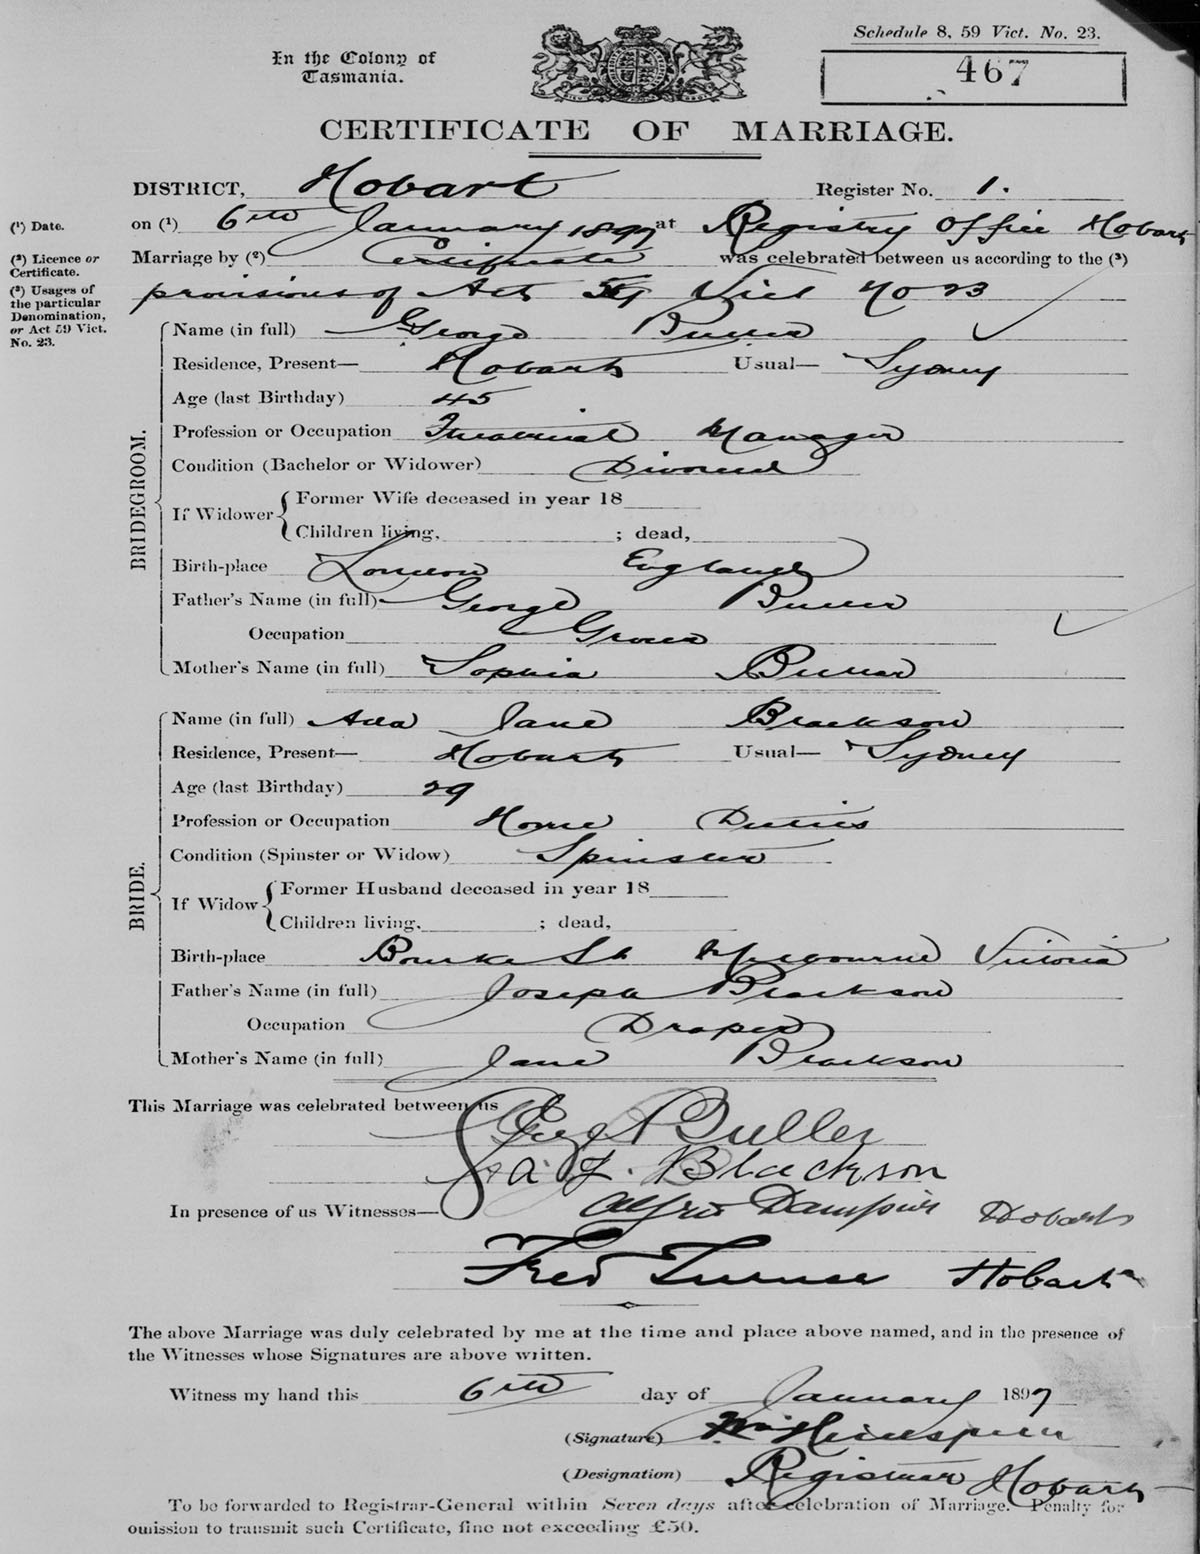 Schedule 8, 59 Vict. No. 23.
In the Colony of
Tasmania.
467
CERTIFICATE OF MARRIAGE.
DISTRICT, Hobart Register No. 1.
(1) Date. on (1) 6th January 1897 at Registry Office Hobart
(2) Licence or Certificate. Marriage by (2) Certificate was celebrated between us according to the (3)
(3) Usages of the particular Denomination, or Act 59 Vict. No. 23. provisions of Act 59 Vict No 23
BRIDEGROOM.
Name (in full) George Buller
Residence, Present— Hobart Usual— Sydney
Age (last Birthday) 45
Profession or Occupation Theatrical Manager
Condition (Bachelor or Widower) Divorced
If Widower Former Wife deceased in year 18
Children living, ; dead,
Birth-place London England
Father's Name (in full) George Buller
Occupation Grocer
Mother's Name (in full) Sophia Buller
BRIDE.
Name (in full) Ada Jane Blackson
Residence, Present— Hobart Usual— Sydney
Age (last Birthday) 29
Profession or Occupation Home Duties
Condition (Spinster or Widow) Spinster
If Widow Former Husband deceased in year 18
Children living, ; dead,
Birth-place Bourke St Melbourne Victoria
Father's Name (in full) Joseph Blackson
Occupation Draper
Mother's Name (in full) Jane Blackson
This Marriage was celebrated between us Buller
A. J. Blackson
In presence of us Witnesses— Alfred Dampier Hobart
Fred Turner Hobart
The above Marriage was duly celebrated by me at the time and place above named, and in the presence of
the Witnesses whose Signatures are above written.
Witness my hand this 6th day of January 1897
(Signature)
(Designation) Registrar Hobart
To be forwarded to Registrar-General within Seven days after celebration of Marriage. Penalty for
omission to transmit such Certificate, fine not exceeding £50.